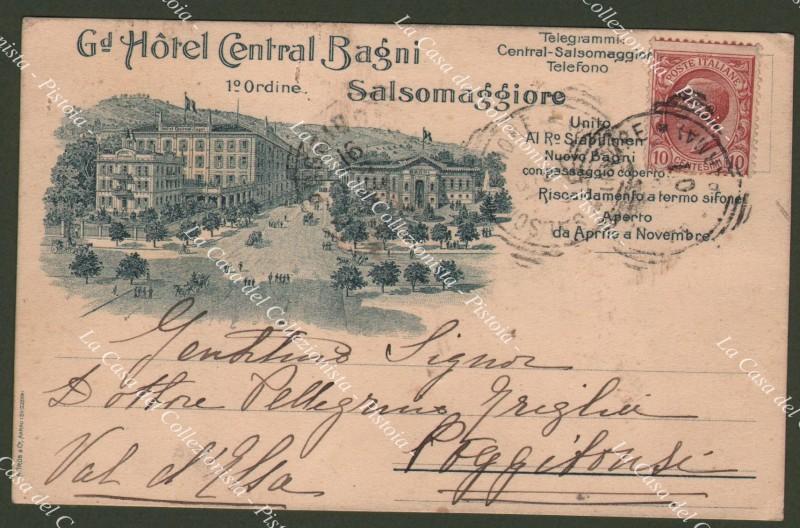 Gd Hôtel Central Bagni
1º Ordine.
Salsomaggiore
Telegrammi
Central-Salsomaggior
Telefono
Unito
Al Rº Stabilimen
Nuovo Bagni
con passaggio coperto.
Riscaldamento a termo sifone
Aperto
da Aprile a Novembre.
POSTE ITALIANE
10 CENTESIMI 10
Gentilmo Signor
Dottore Pellegrino Griglia
Poggibonsi
Val d'Elsa
La Casa del Collezionista - Pistoia -